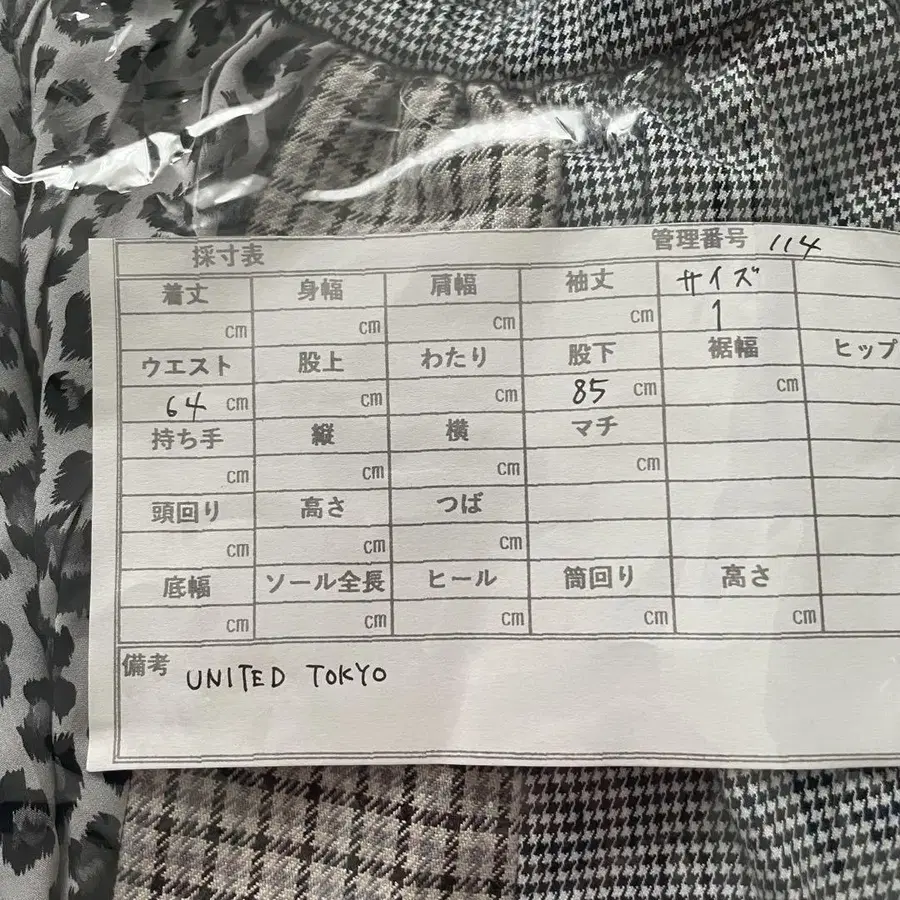 採寸表 管理番号 114
着丈 身幅 肩幅 袖丈 サイズ
cm cm cm cm 1
ウエスト 股上 わたり 股下 裾幅 ヒップ
64 cm cm cm 85 cm cm
持ち手 縦 横 マチ
cm cm cm cm
頭回り 高さ つば
cm cm cm
底幅 ソール全長 ヒール 筒回り 高さ
cm cm cm cm cm
備考 UNITED TOKYO